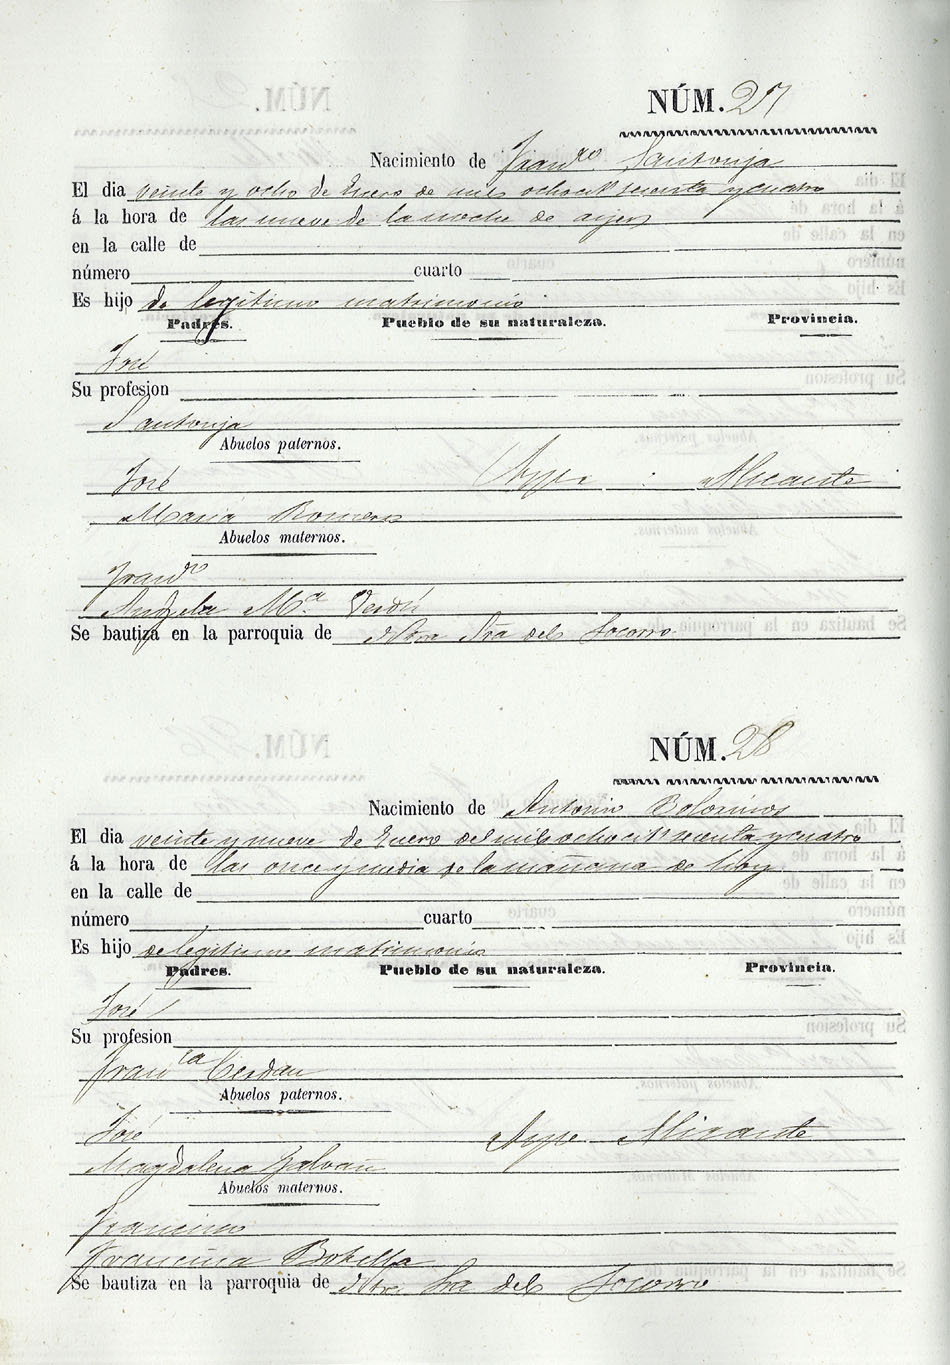 NÚM. 27
Nacimiento de Fran.co Santonja
El dia veinte y ocho de Enero de mil ochoct. sesenta y cuatro
á la hora de las nueve de la noche de ayer
en la calle de
número cuarto
Es hijo de legitimo matrimonio
Padres. Pueblo de su naturaleza. Provincia.
José
Su profesion
Santonja
Abuelos paternos.
José Aspe Alicante
Maria Romero
Abuelos maternos.
Fran.co
Angela M.a Verdú
Se bautiza en la parroquia de Ntra Sra del Socorro
NÚM. 28
Nacimiento de Antonio Belorinos
El dia veinte y nueve de Enero del mil ochoct. sesenta y cuatro
á la hora de las once y media de la mañana de hoy
en la calle de
número cuarto
Es hijo de legitimo matrimonio
Padres. Pueblo de su naturaleza. Provincia.
José
Su profesion
Fran.ca Cerdan
Abuelos paternos.
José Aspe Alicante
Magdalena Galvañ
Abuelos maternos.
Francisco
Francisca Botella
Se bautiza en la parroquia de Ntra Sra del Socorro